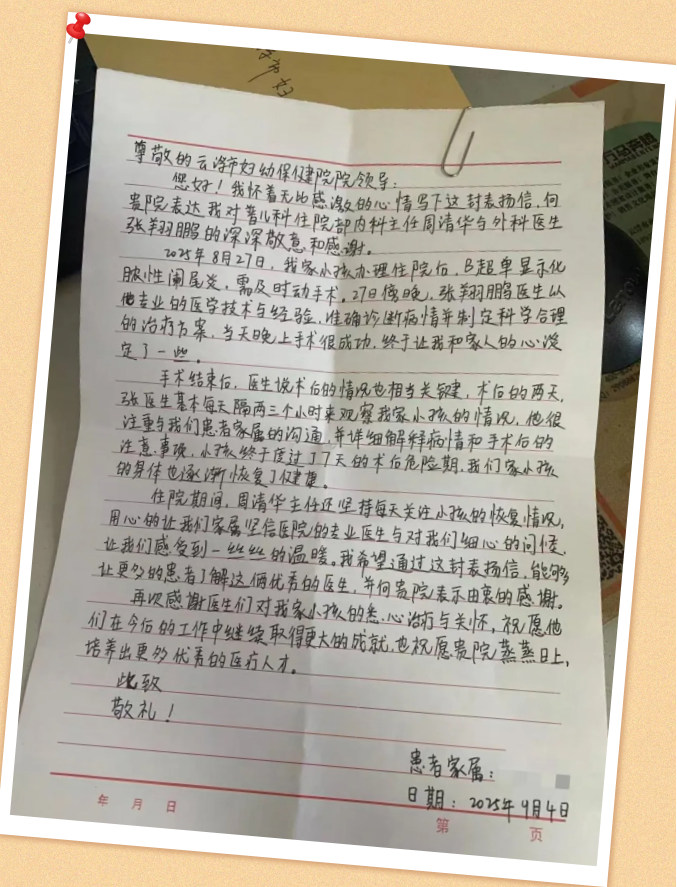 尊敬的云浮市妇幼保健院院领导:
您好!我怀着无比感激的心情写下这封表扬信,向
贵院表达我对普儿科住院部内科主任周清华与外科医生
张翔鹏的深深敬意和感谢。
2025年8月27日,我家小孩办理住院后,B超单显示化
脓性阑尾炎,需及时动手术。27日傍晚,张翔鹏医生以
他专业的医学技术与经验,准确诊断病情并制定科学合理
的治疗方案,当天晚上手术很成功,终于让我和家人的心淡
定了一些。
手术结束后,医生说术后的情况也相当关键,术后的两天,
张医生基本每天隔两三个小时来观察我家小孩的情况,他很
注重与我们患者家属的沟通,并详细解释病情和手术后的
注意事项,小孩终于度过了7天的术后危险期,我们家小孩
的身体也逐渐恢复了健康。
住院期间,周清华主任还坚持每天关注小孩的恢复情况,
用心的让我们家属坚信医院的专业医生与对我们细心的问候,
让我们感受到一丝丝的温暖。我希望通过这封表扬信,能够
让更多的患者了解这俩优秀的医生,并向贵院表示由衷的感谢。
再次感谢医生们对我家小孩的悉心治疗与关怀,祝愿他
们在今后的工作中继续取得更大的成就,也祝愿贵院蒸蒸日上,
培养出更多优秀的医疗人才。
此致
敬礼!
患者家属:
日期:2025年9月4日
年 月 日
第 页